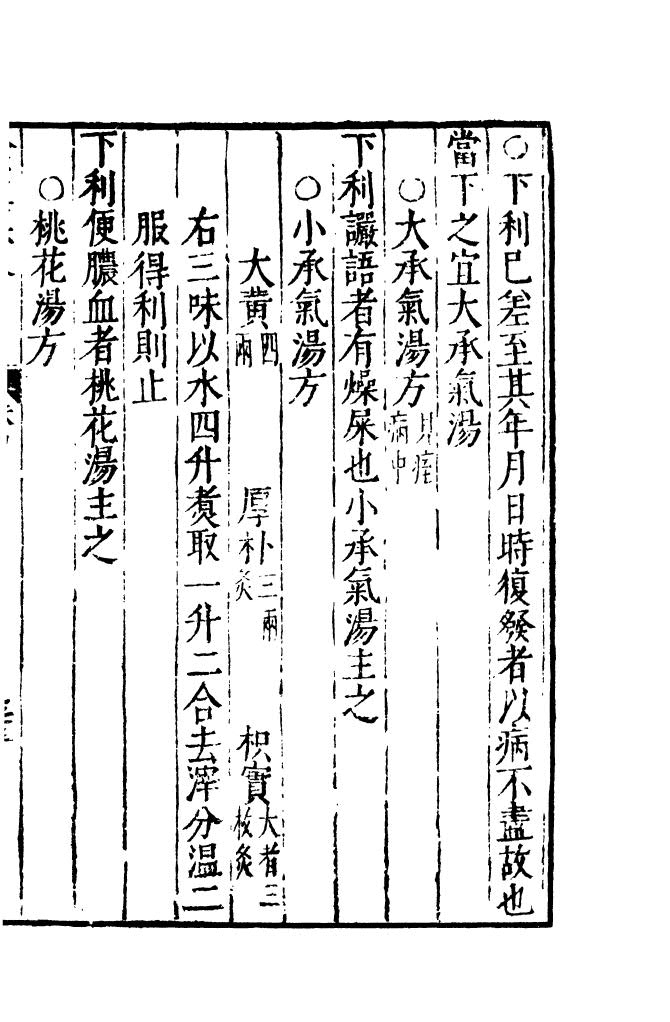 ○下利已差至其年月日時復發者以病不盡故也
當下之宜大承氣湯
○大承氣湯方見痓病中
下利讝語者有燥屎也小承氣湯主之
○小承氣湯方
大黃四兩 厚朴三兩炙 枳實大者三枚炙
右三味以水四升煑取一升二合去滓分溫二
服得利則止
下利便膿血者桃花湯主之
○桃花湯方